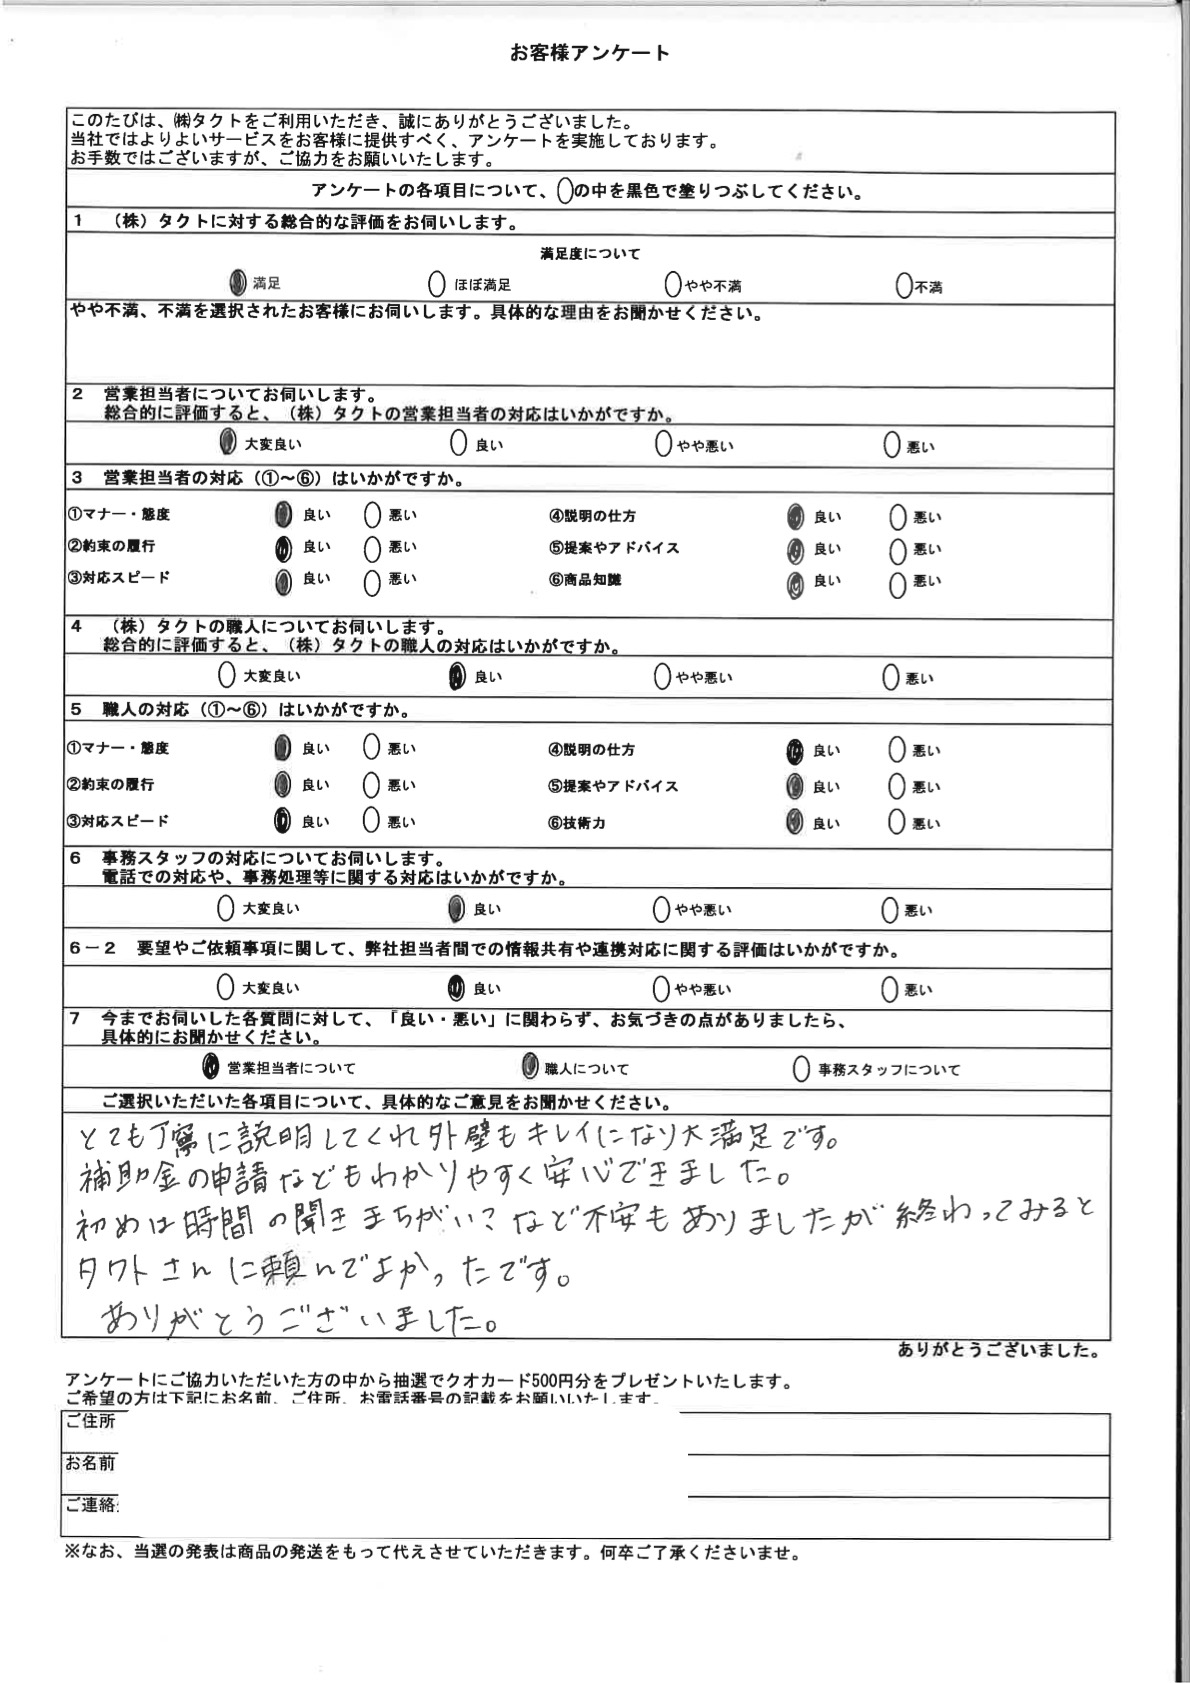 お客様アンケート
このたびは、㈱タクトをご利用いただき、誠にありがとうございました。
当社ではよりよいサービスをお客様に提供すべく、アンケートを実施しております。
お手数ではございますが、ご協力をお願いいたします。
アンケートの各項目について、○の中を黒色で塗りつぶしてください。
1 （株）タクトに対する総合的な評価をお伺いします。
満足度について
満足 ほぼ満足 やや不満 不満
やや不満、不満を選択されたお客様にお伺いします。具体的な理由をお聞かせください。
2 営業担当者についてお伺いします。
総合的に評価すると、（株）タクトの営業担当者の対応はいかがですか。
大変良い 良い やや悪い 悪い
3 営業担当者の対応（①～⑥）はいかがですか。
①マナー・態度 良い 悪い ④説明の仕方 良い 悪い
②約束の履行 良い 悪い ⑤提案やアドバイス 良い 悪い
③対応スピード 良い 悪い ⑥商品知識 良い 悪い
4 （株）タクトの職人についてお伺いします。
総合的に評価すると、（株）タクトの職人の対応はいかがですか。
大変良い 良い やや悪い 悪い
5 職人の対応（①～⑥）はいかがですか。
①マナー・態度 良い 悪い ④説明の仕方 良い 悪い
②約束の履行 良い 悪い ⑤提案やアドバイス 良い 悪い
③対応スピード 良い 悪い ⑥技術力 良い 悪い
6 事務スタッフの対応についてお伺いします。
電話での対応や、事務処理等に関する対応はいかがですか。
大変良い 良い やや悪い 悪い
6－2 要望やご依頼事項に関して、弊社担当者間での情報共有や連携対応に関する評価はいかがですか。
大変良い 良い やや悪い 悪い
7 今までお伺いした各質問に対して、「良い・悪い」に関わらず、お気づきの点がありましたら、
具体的にお聞かせください。
営業担当者について 職人について 事務スタッフについて
ご選択いただいた各項目について、具体的なご意見をお聞かせください。
とても丁寧に説明してくれ外壁もキレイになり大満足です。
補助金の申請などもわかりやすく安心できました。
初めは時間の聞きまちがいなど不安もありましたが終わってみると
タクトさんに頼んでよかったです。
ありがとうございました。
ありがとうございました。
アンケートにご協力いただいた方の中から抽選でクオカード500円分をプレゼントいたします。
ご希望の方は下記にお名前、ご住所、お電話番号の記載をお願いいたします。
ご住所
お名前
ご連絡
※なお、当選の発表は商品の発送をもって代えさせていただきます。何卒ご了承くださいませ。